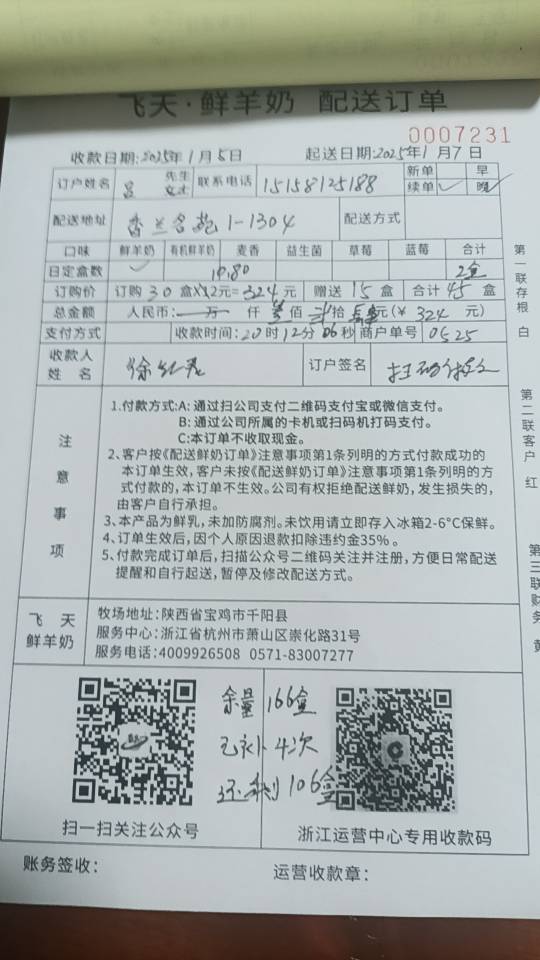 飞天·鲜羊奶 配送订单
0007231
收款日期:2025年1月5日 起送日期:2025年1月7日
订户姓名 吕 先生 女士 联系电话 15158125188 新单 早
续单✓ 晚✓
配送地址 香兰名苑1-1304 配送方式
口味 鲜羊奶 有机鲜羊奶 麦香 益生菌 草莓 蓝莓 合计
日定盒数 ✓ 10.80 2盒
订购价 订购30盒X12元=324元 赠送15盒 合计45盒
总金额 人民币: 万 仟 叁佰 贰拾 肆元(¥ 324 元)
支付方式 收款时间:20时12分06秒 商户单号 0525
收款人姓名 徐 订户签名 扫码付款
注意事项
1.付款方式:A:通过扫公司支付二维码支付宝或微信支付。
B:通过公司所属的卡机或扫码机打码支付。
C:本订单不收取现金。
2、客户按《配送鲜奶订单》注意事项第1条列明的方式付款成功的
本订单生效,客户未按《配送鲜奶订单》注意事项第1条列明的方
式付款的,本订单不生效。公司有权拒绝配送鲜奶,发生损失的,
由客户自行承担。
3、本产品为鲜乳,未加防腐剂。未饮用请立即存入冰箱2-6°C保鲜。
4、订单生效后,因个人原因退款扣除违约金35%。
5、付款完成订单后,扫描公众号二维码关注并注册,方便日常配送
提醒和自行起送,暂停及修改配送方式。
飞天鲜羊奶
牧场地址:陕西省宝鸡市千阳县
服务中心:浙江省杭州市萧山区崇化路31号
服务电话:4009926508 0571-83007277
余量166盒
已补4次
还剩106盒
扫一扫关注公众号 浙江运营中心专用收款码
账务签收: 运营收款章:
第一联存根 白
第二联客户 红
第三联财务 黄